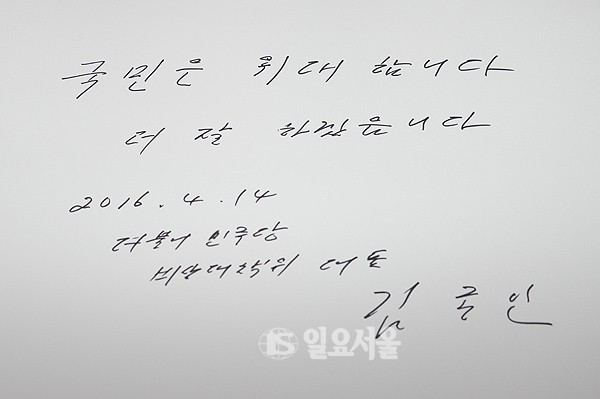 국민은 위대 합니다
더 잘 하겠읍니다
2016. 4. 14
더불어 민주당
비상대책위 대표
김 종 인
일요서울